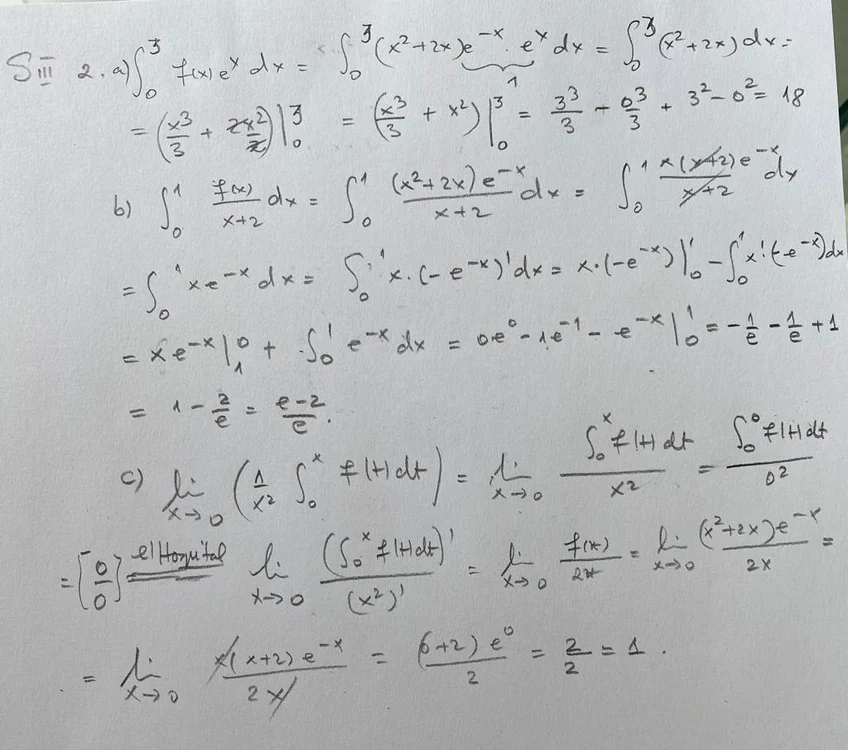 SIII 2. a) ∫₀³ f(x) eˣ dx = ∫₀³ (x²+2x) e⁻ˣ · eˣ dx = ∫₀³ (x²+2x) dx =
1
= (x³/3 + 2x²/2) |₀³ = (x³/3 + x²) |₀³ = 3³/3 - 0³/3 + 3² - 0² = 18
b) ∫₀¹ f(x)/(x+2) dx = ∫₀¹ (x²+2x) e⁻ˣ/(x+2) dx = ∫₀¹ x(x+2) e⁻ˣ/(x+2) dx
= ∫₀¹ x e⁻ˣ dx = ∫₀¹ x · (-e⁻ˣ)' dx = x · (-e⁻ˣ) |₀¹ - ∫₀¹ x' · (-e⁻ˣ) dx
= x e⁻ˣ |₁⁰ + ∫₀¹ e⁻ˣ dx = 0e⁰ - 1e⁻¹ - e⁻ˣ |₀¹ = -1/e - 1/e + 1
= 1 - 2/e = (e-2)/e.
c) lim x→0 (1/x² ∫₀ˣ f(t) dt) = lim x→0 ∫₀ˣ f(t) dt / x² = ∫₀⁰ f(t) dt / 0²
= [0/0] e'Hospital lim x→0 (∫₀ˣ f(t) dt)' / (x²)' = lim x→0 f(x)/2x = lim x→0 (x²+2x) e⁻ˣ / 2x =
= lim x→0 x(x+2) e⁻ˣ / 2x = (0+2) e⁰ / 2 = 2/2 = 1.